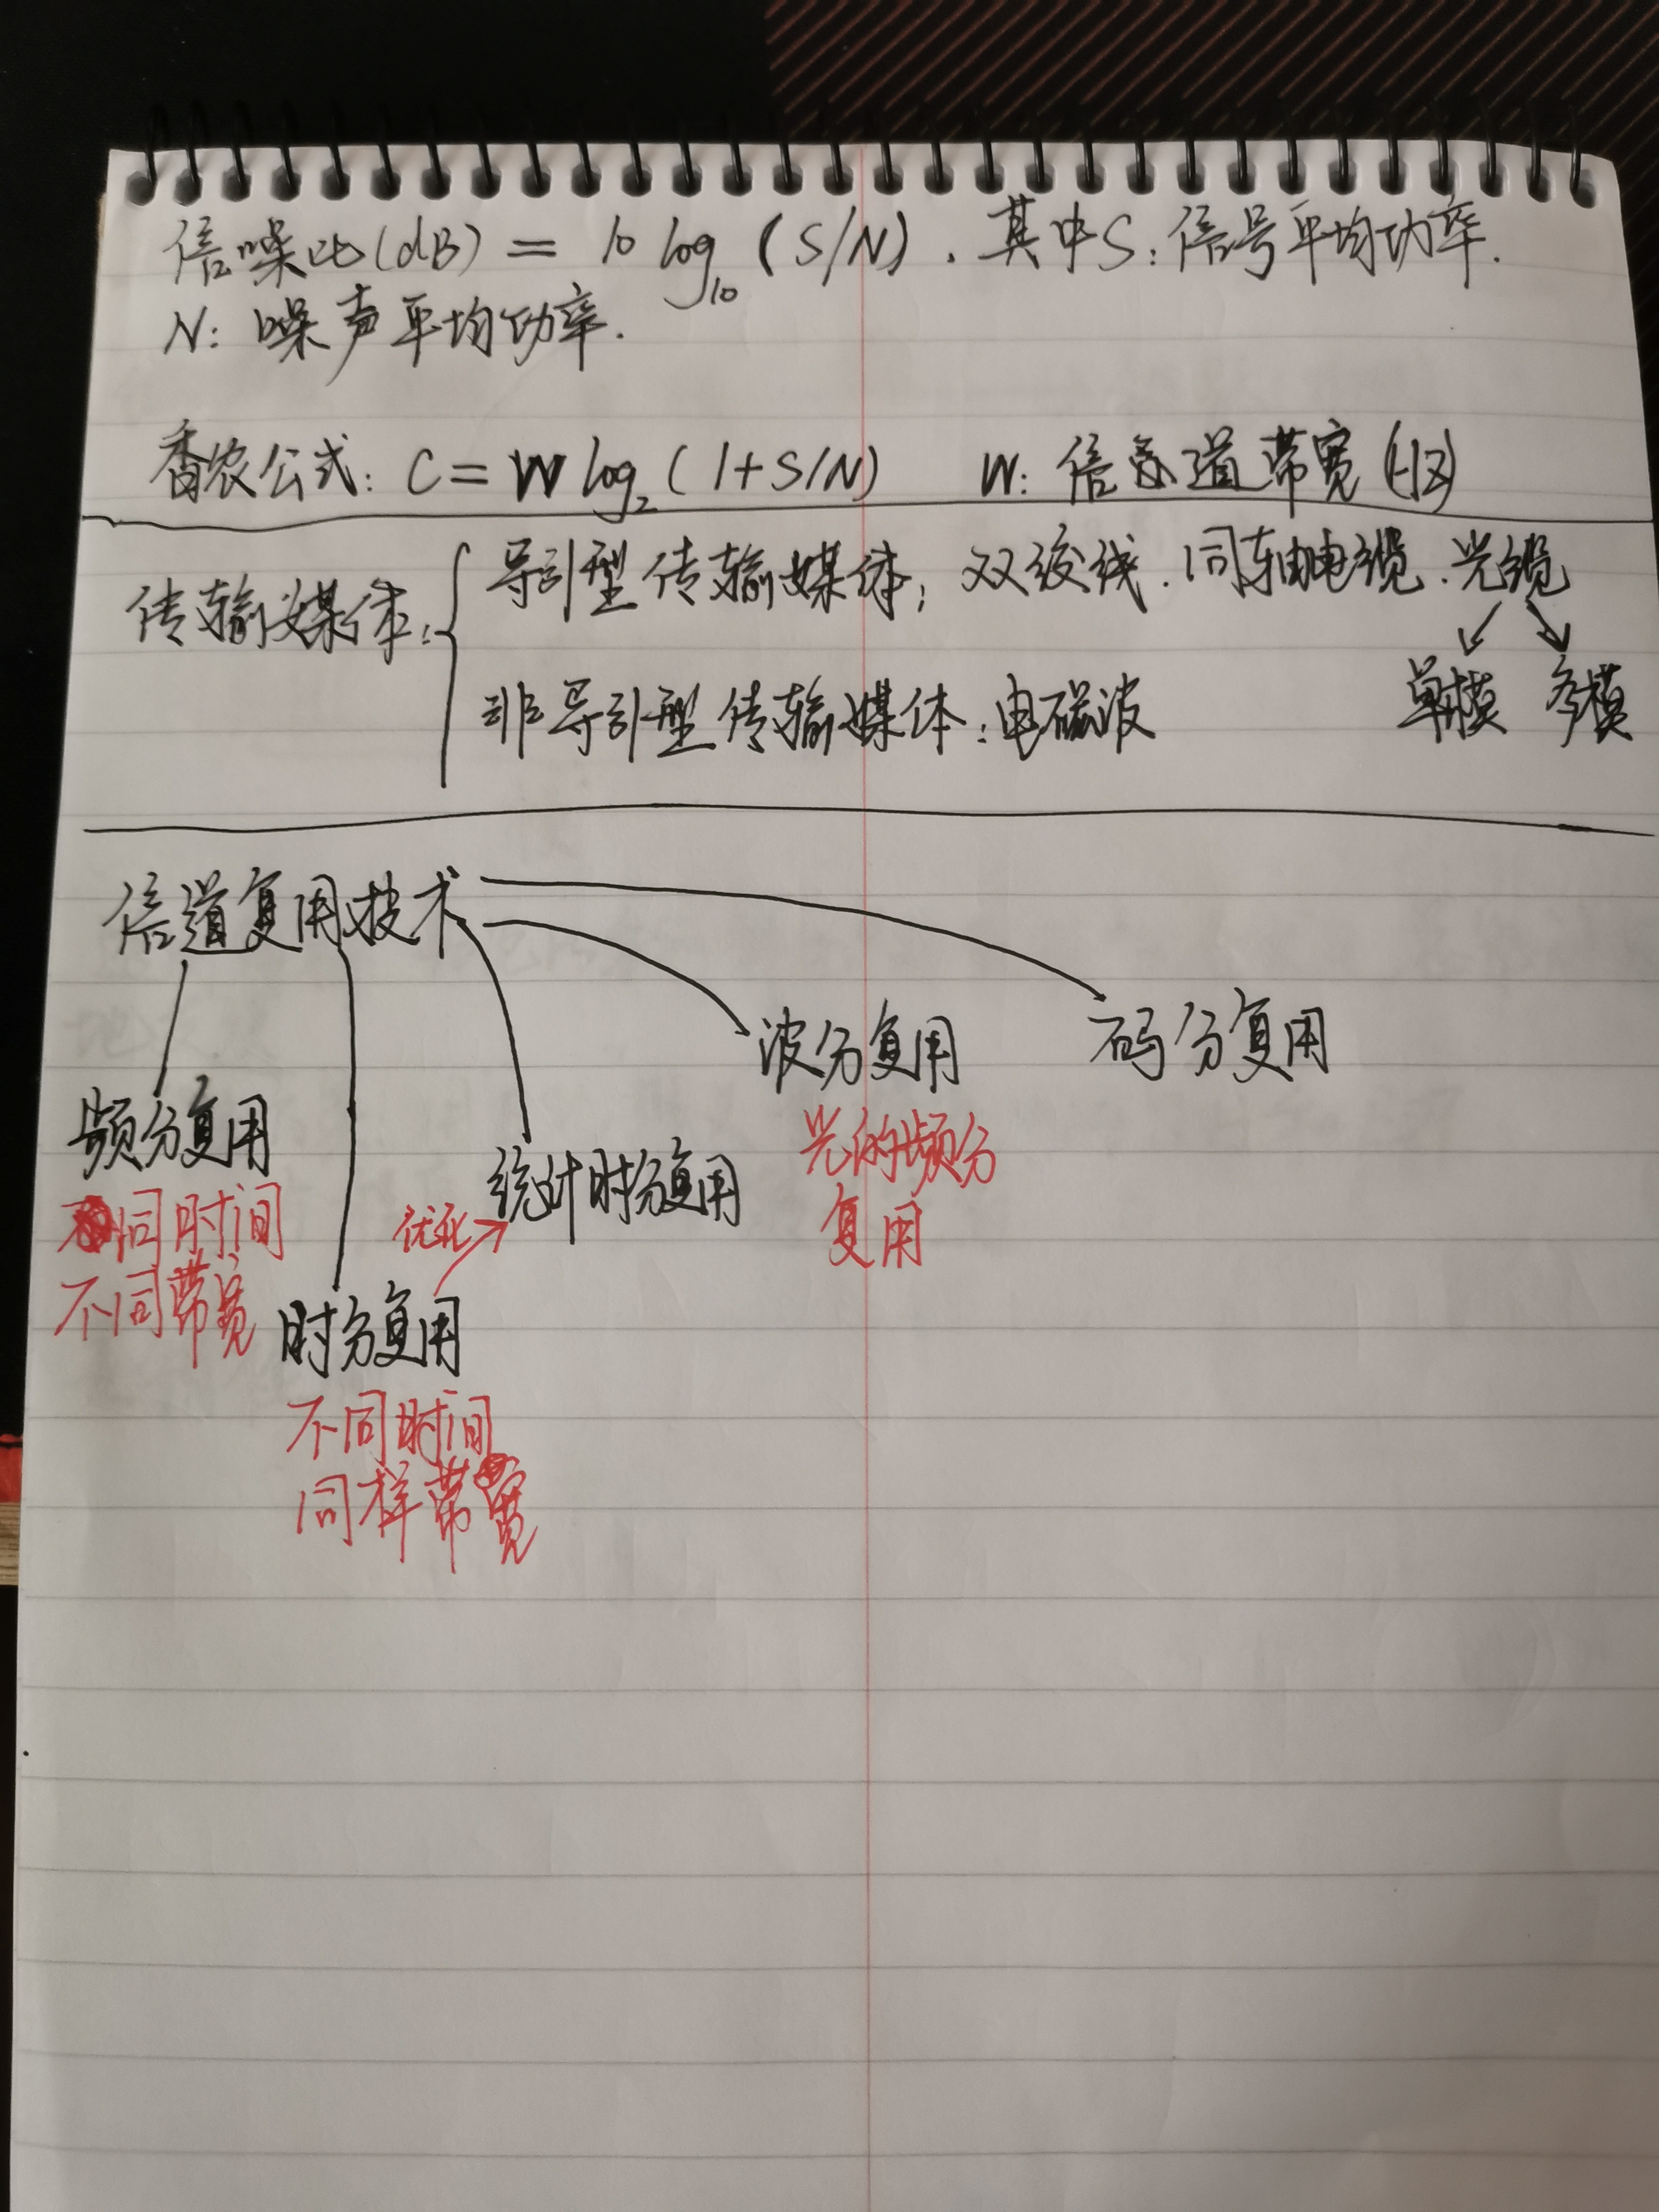 信噪比(dB) = 10 log₁₀ (S/N). 其中S:信号平均功率.
N: 噪声平均功率.
香农公式: C = W log₂ (1+S/N) W: 信道带宽 (HZ)
传输媒体:
导引型传输媒体: 双绞线. 同轴电缆. 光缆
单模 多模
非导引型传输媒体: 电磁波
信道复用技术
频分复用
同时间
不同带宽
时分复用
不同时间
同样带宽
优化
统计时分复用
波分复用
光的频分
复用
码分复用